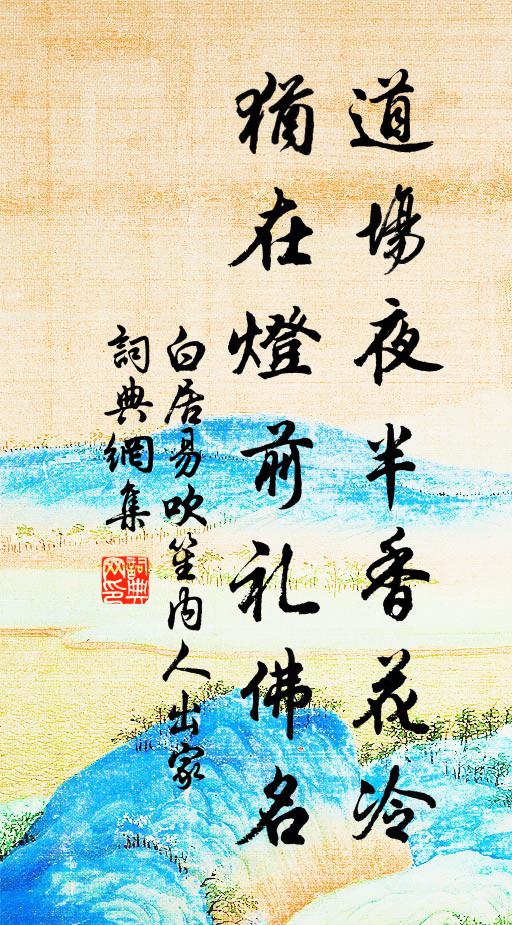 道場夜半香花冷
猶在燈前礼佛名
白居易吹笙内人出家
詞典網集
詞典网印